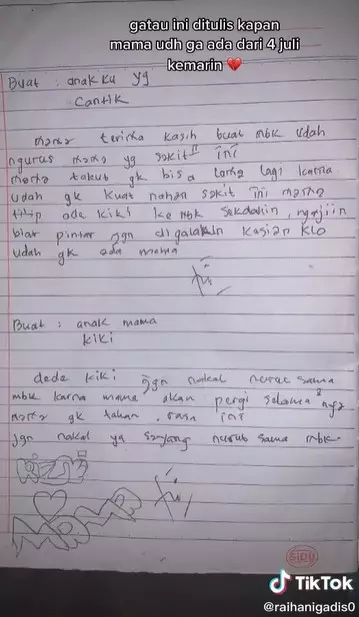 gatau ini ditulis kapan
mama udh ga ada dari 4 juli
kemarin 💔
Buat : anakku yg
cantik
mama terima kasih buat mbk udah
ngurus mama yg sakit" ini
mama takut gk bisa lama lagi karna
udah gk kuat nahan sakit ini mama
titip ade kiki ke mbk sekolahin, ngajiin
biar pintar jgn di galakin kasian klo
udah gk ada mama
Buat : anak mama
kiki
dede kiki jgn nakal nurut sama
mbk karna mama akan pergi selama²nya
mama gk tahan rasa ini
jgn nakal ya sayang nurut sama mbk
MAMA
SIDU
TikTok
@raihanigadis0